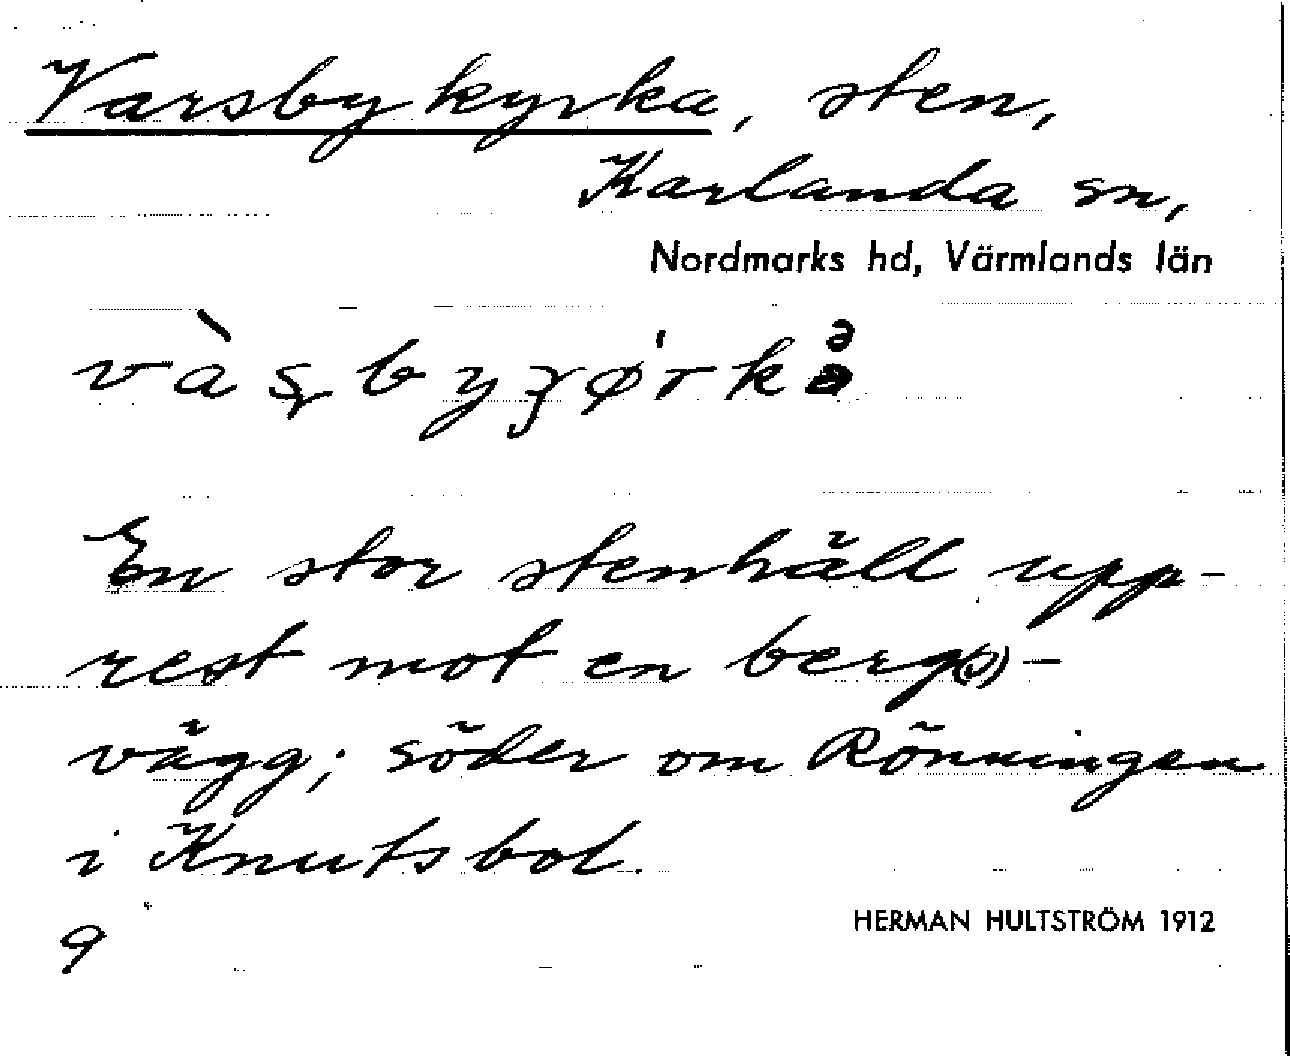 Varsby kyrka, sten,
Karlanda sn,
Nordmarks hd, Värmlands län
En stor stenhäll upp-
rest mot en berg(s)-
vägg; söder om Rönningen
i Knutsbol.
9
HERMAN HULTSTRÖM 1912